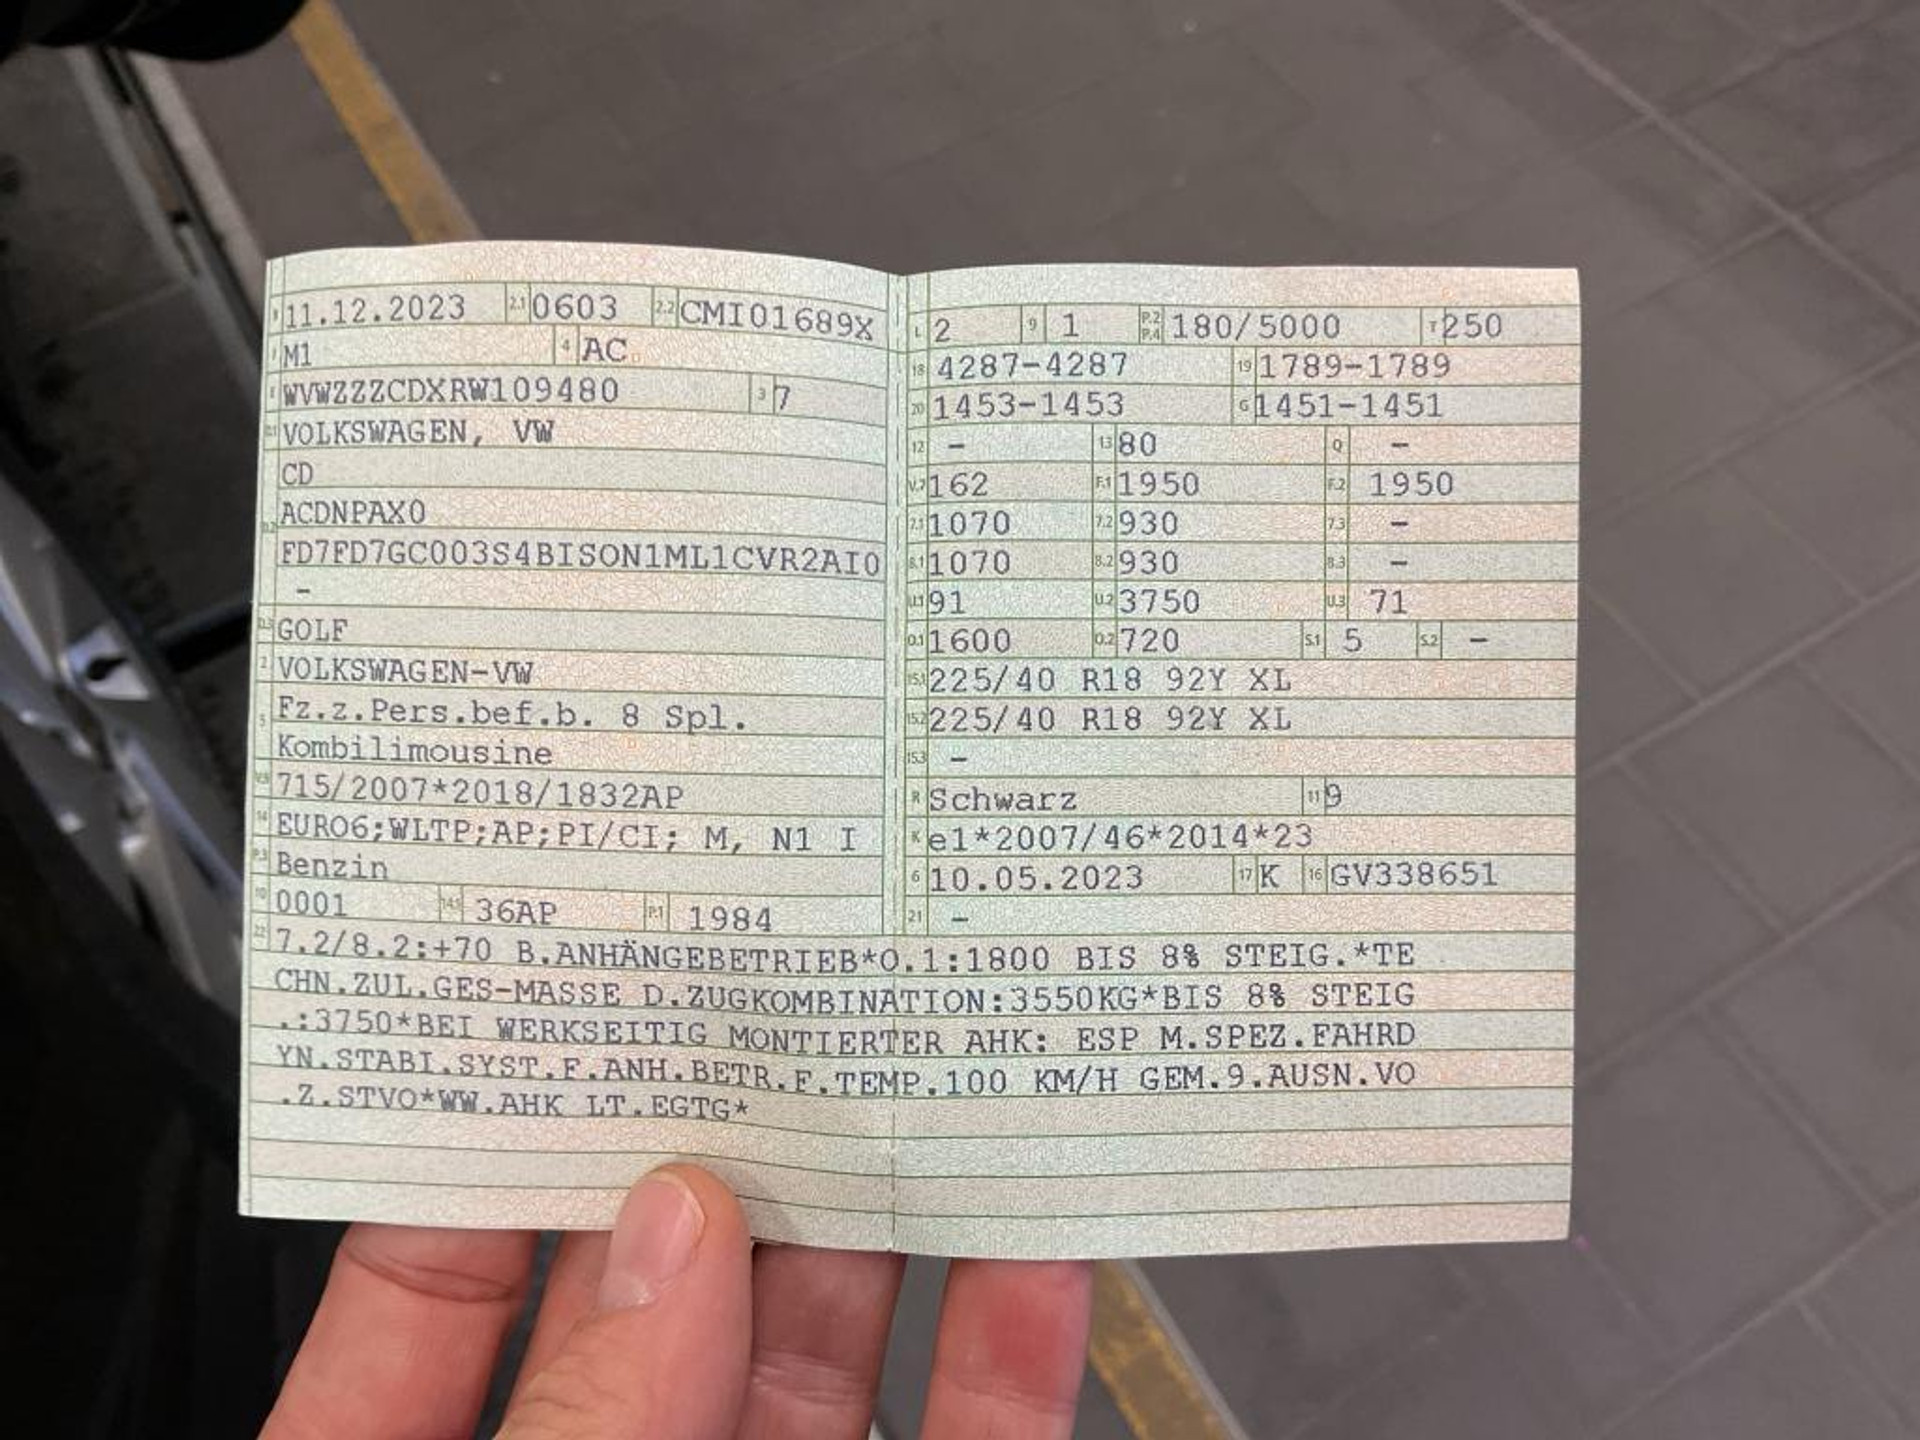 11.12.2023 2.1 0603 2.2 CMI01689X
J M1 4 AC
E WVWZZZCDXRW109480 3 7
D.1 VOLKSWAGEN, VW
CD
ACDNPAX0
D.2 FD7FD7GC003S4BISON1ML1CVR2AI0
-
D.3 GOLF
2 VOLKSWAGEN-VW
5 Fz.z.Pers.bef.b. 8 Spl.
Kombilimousine
V.9 715/2007*2018/1832AP
14 EURO6;WLTP;AP;PI/CI; M, N1 I
P.3 Benzin
10 0001 14.1 36AP P.1 1984
L 2 9 1 P.2 P.4 180/5000 T 250
18 4287-4287 19 1789-1789
20 1453-1453 G 1451-1451
12 - 13 80 Q -
V.7 162 F.1 1950 F.2 1950
7.1 1070 7.2 930 7.3 -
8.1 1070 8.2 930 8.3 -
U.1 91 U.2 3750 U.3 71
O.1 1600 O.2 720 S.1 5 S.2 -
15.1 225/40 R18 92Y XL
15.2 225/40 R18 92Y XL
15.3 -
R Schwarz 11 9
K e1*2007/46*2014*23
6 10.05.2023 17 K 16 GV338651
21 -
22 7.2/8.2:+70 B.ANHÄNGEBETRIEB*O.1:1800 BIS 8% STEIG.*TE
CHN.ZUL.GES-MASSE D.ZUGKOMBINATION:3550KG*BIS 8% STEIG
.:3750*BEI WERKSEITIG MONTIERTER AHK: ESP M.SPEZ.FAHRD
YN.STABI.SYST.F.ANH.BETR.F.TEMP.100 KM/H GEM.9.AUSN.VO
.Z.STVO*WW.AHK LT.EGTG*